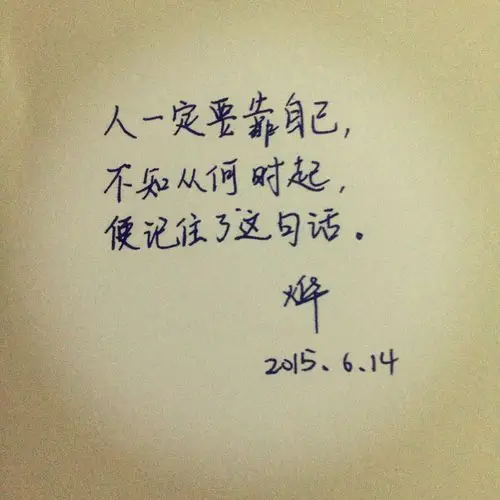 人一定要靠自己，
不知从何时起，
便记住了这句话。
烨
2015.6.14